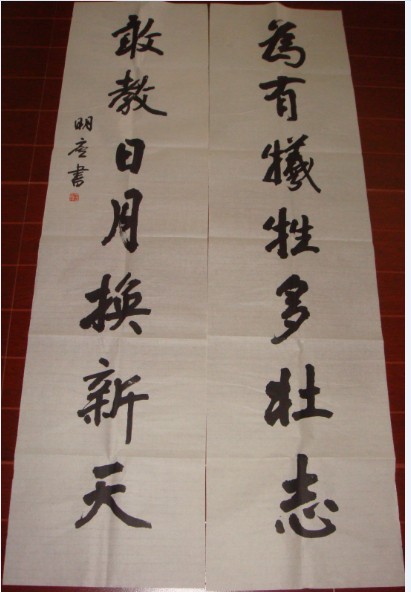 為有犧牲多壯志
敢教日月換新天
明應書